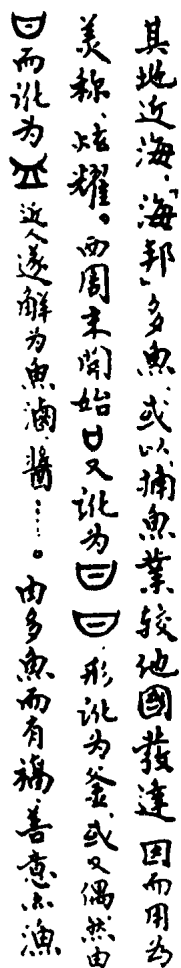 其地近海，「海邦」多魚，或以捕魚業較他國發達 因而用為
美称、炫耀。西周末開始口又訛为 形訛为釜，或又偶然由
而訛为 近人遂解为魚滷、醬……。由多魚而有福、善意。漁